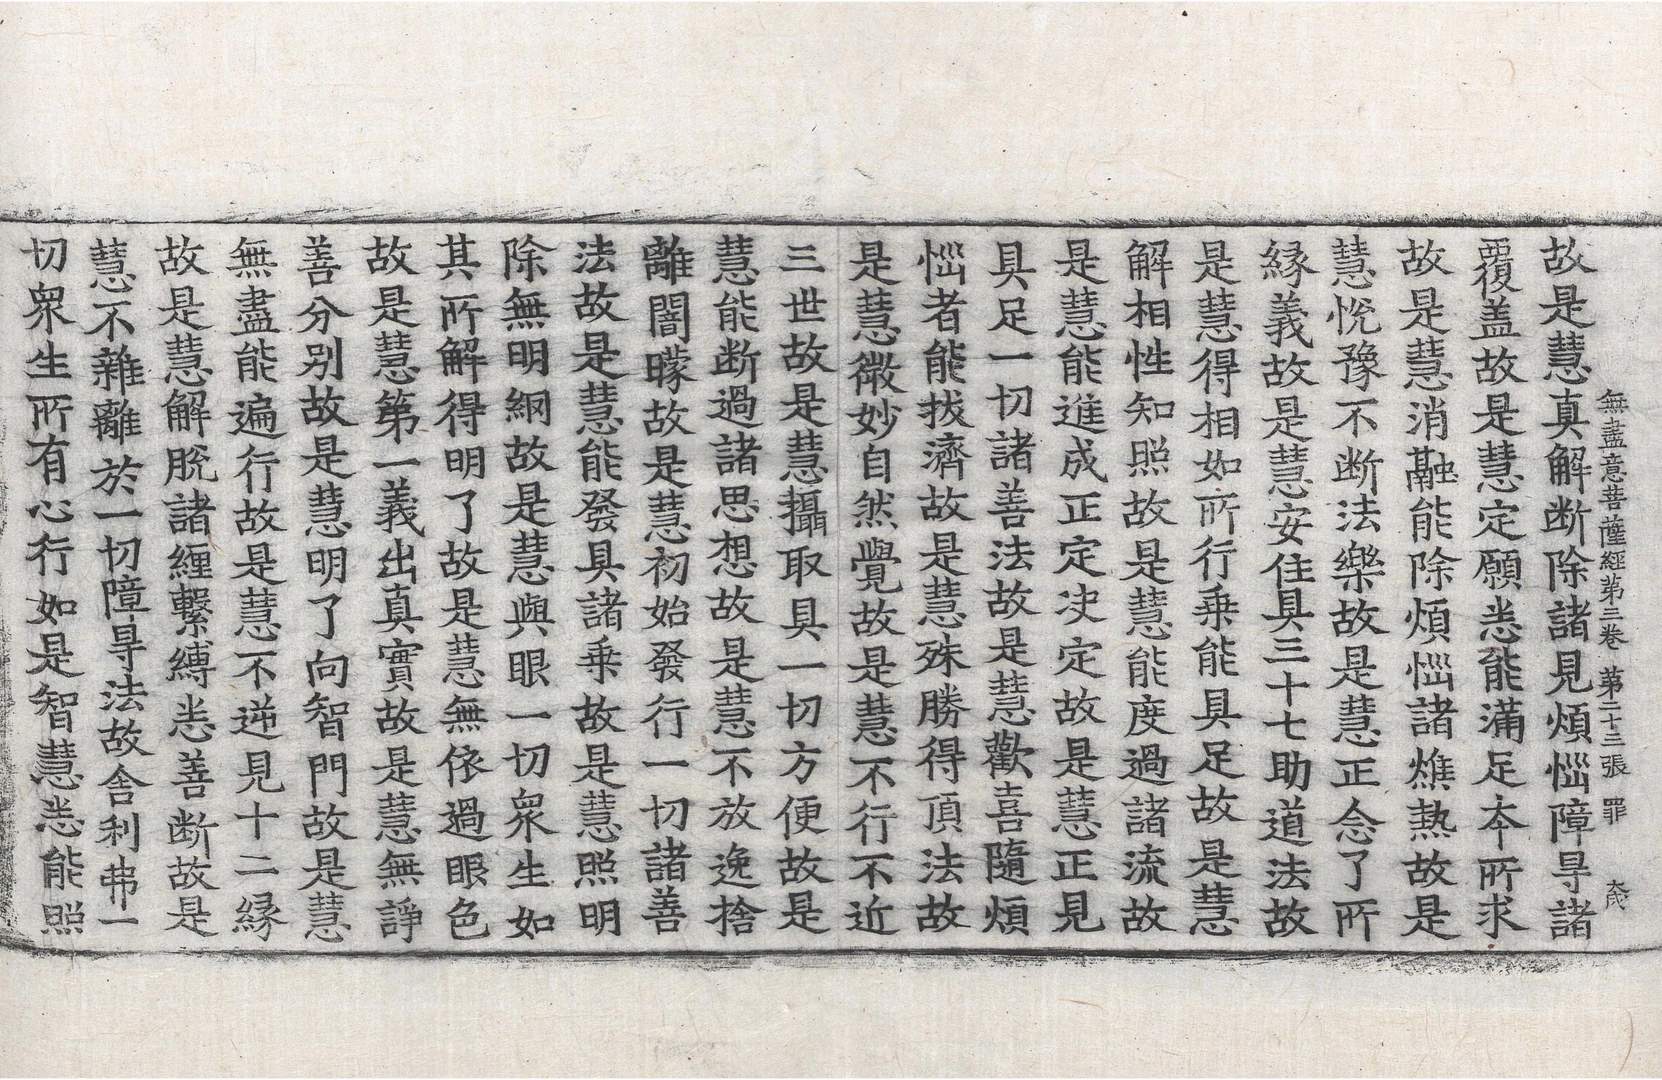 無盡意菩薩經第三卷 第二十三張 罪
故是慧真解断除諸見煩惱障㝵諸
覆盖故是慧定願悉能滿足夲所求
故是慧消融能除煩惱諸燋熱故是
慧悅豫不断法樂故是慧正念了所
縁義故是慧安住具三十七助道法故
是慧得相如所行乗能具足故是慧
解相性知照故是慧能度過諸流故
是慧能進成正定决定故是慧正見
具足一切諸善法故是慧歡喜隨煩
惱者能拔濟故是慧殊勝得頂法故
是慧微妙自然覺故是慧不行不近
三世故是慧攝取具一切方便故是
慧能断過諸思想故是慧不放逸捨
離闇曚故是慧初始發行一切諸善
法故是慧能發具諸乗故是慧照明
除無明網故是慧與眼一切衆生如
其所解得明了故是慧無依過眼色
故是慧第一義出真實故是慧無諍
善分别故是慧明了向智門故是慧
無盡能遍行故是慧不逆見十二縁
故是慧解脫諸纏繫縛悉善断故是
慧不雜離於一切障㝵法故舍利弗一
切衆生所有心行如是智慧悉能照